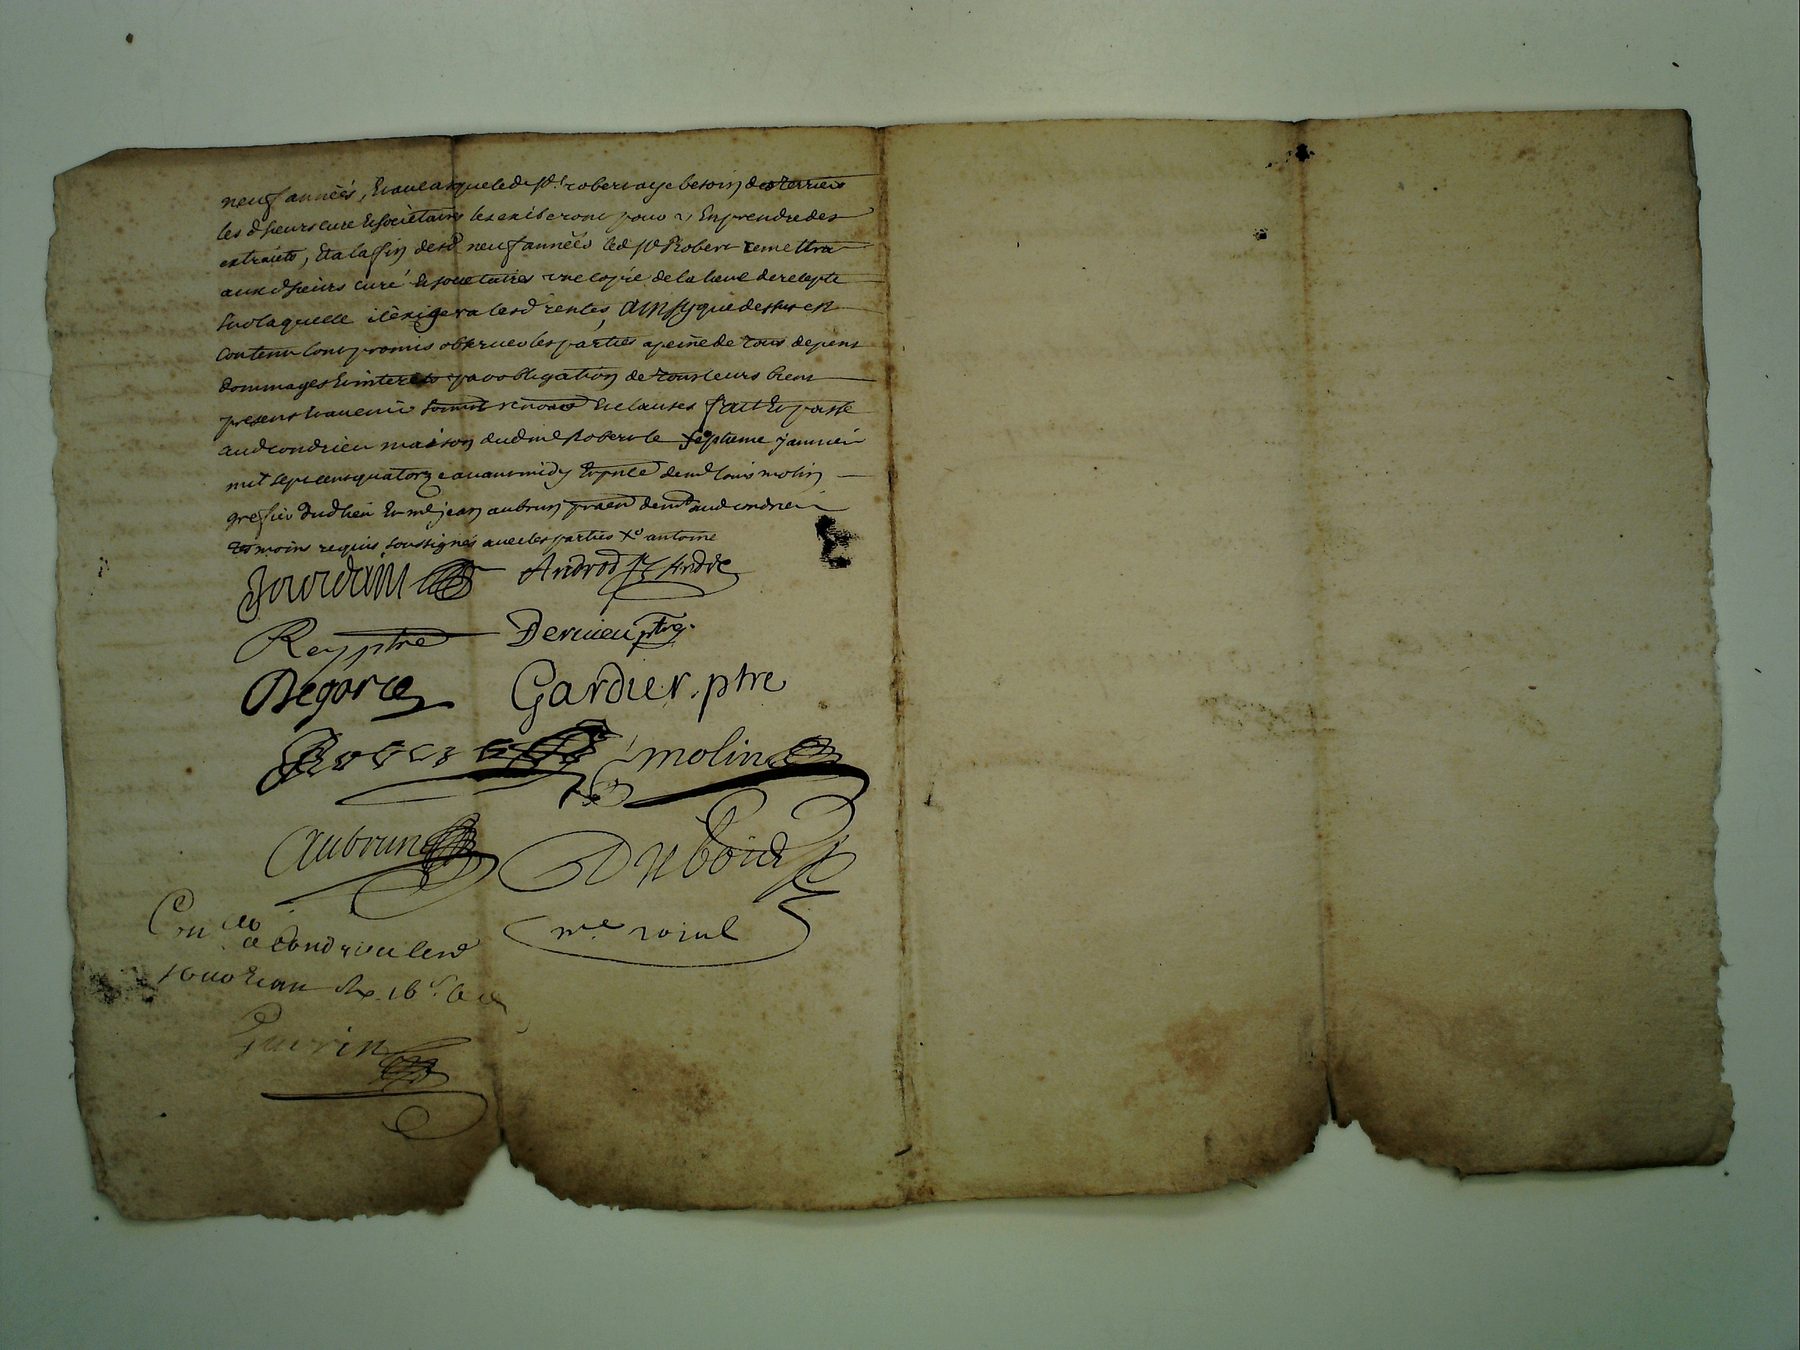 neuf années, Et au cas que led sr robert aye besoin des terriers
les dsieurs curé & sociétaires les exiberont pour En prendre des
extraits, Et a la fin desd neuf années led sr Robert remettra
aux dsieurs curé & societaires une copie de la lieve de recepte
sur laquelle il exigera lesd rentes, Ainsy que dessus est
contenu l'ont promis observer les parties a peine de tous depens
dommages & interets par obligation de tous leurs biens
presens & avenir soumis renonce & clauses fait & passé
aud condrieu maison dud me Robert le septieme janvier
mil sept cens quatorze avant midy En pnce de me louis molin
grefier dud lieu & me jean aubrun demt aud condrieu
tesmoins requis soussignés avec les parties antoine
Jourdain Androd André
Rey ptre Dervieu ptre
Degorce Gardier. ptre
Robert molin
aubrun Dubois
a Condrieu
Guerin